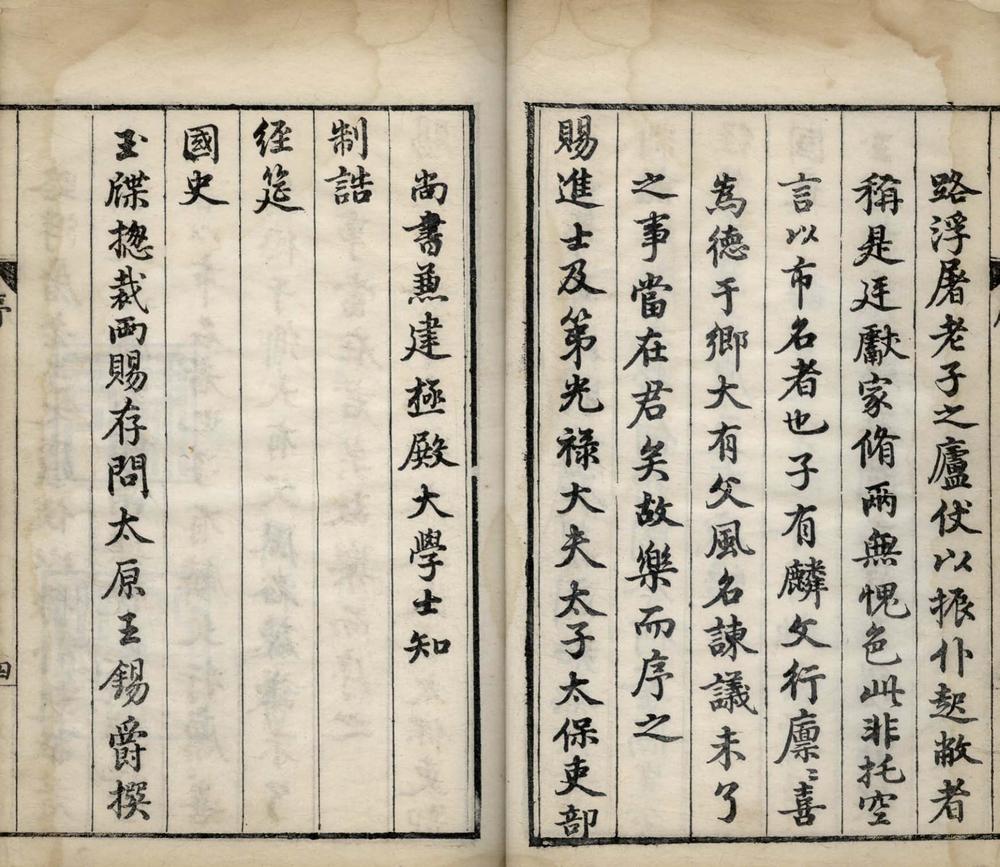 路浮屠老子之廬伏以振仆起敝者
稱是廷獻家脩兩無愧色此非托空
言以市名者也子有麟文行廪〻喜
為德于鄉大有父風名諫議未了
之事當在君矣故樂而序之
賜進士及第光祿大夫太子太保吏部
尚書兼建極殿大學士知
制誥
經筵
國史
玉牒揔裁兩賜存問太原王錫爵撰
序
四